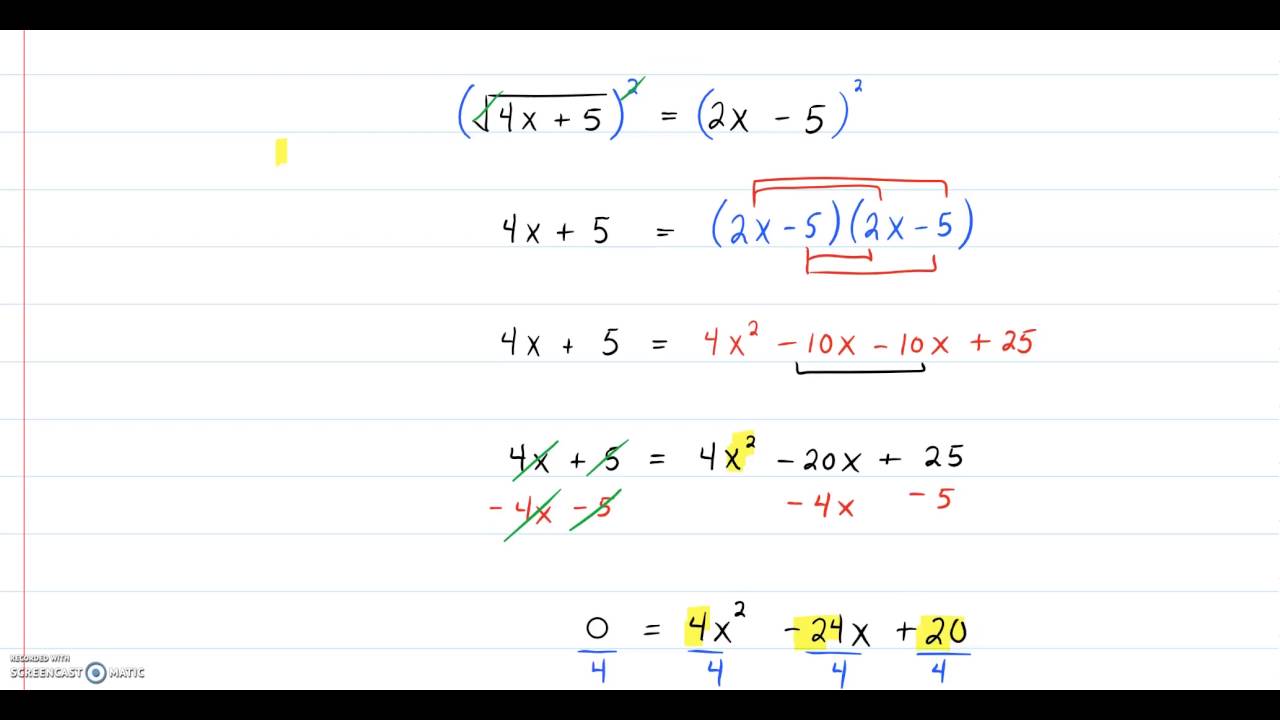 (√4x + 5)² = (2x - 5)²
4x + 5 = (2x - 5)(2x - 5)
4x + 5 = 4x² - 10x - 10x + 25
4x + 5 = 4x² - 20x + 25
- 4x - 5 - 4x - 5
0 = 4x² - 24x + 20
4 4 4 4
RECORDED WITH
SCREENCAST MATIC